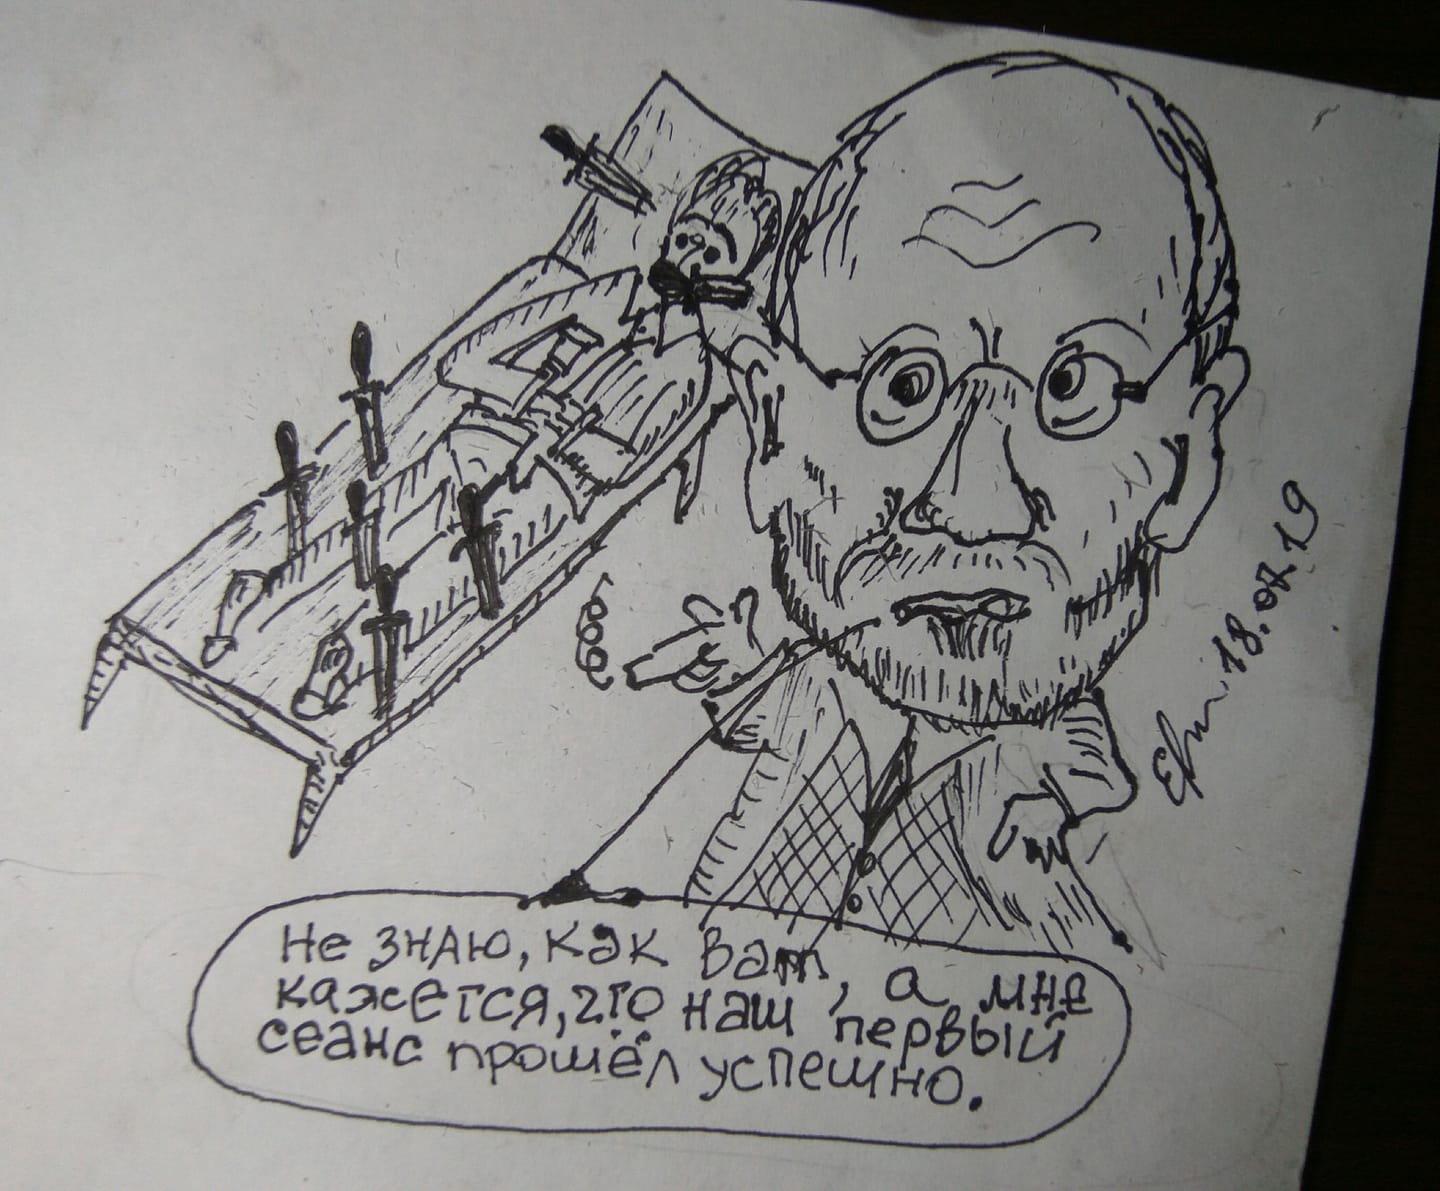 Не знаю, как вам, а мне
кажется, что наш первый
сеанс прошёл успешно.
18.07.19